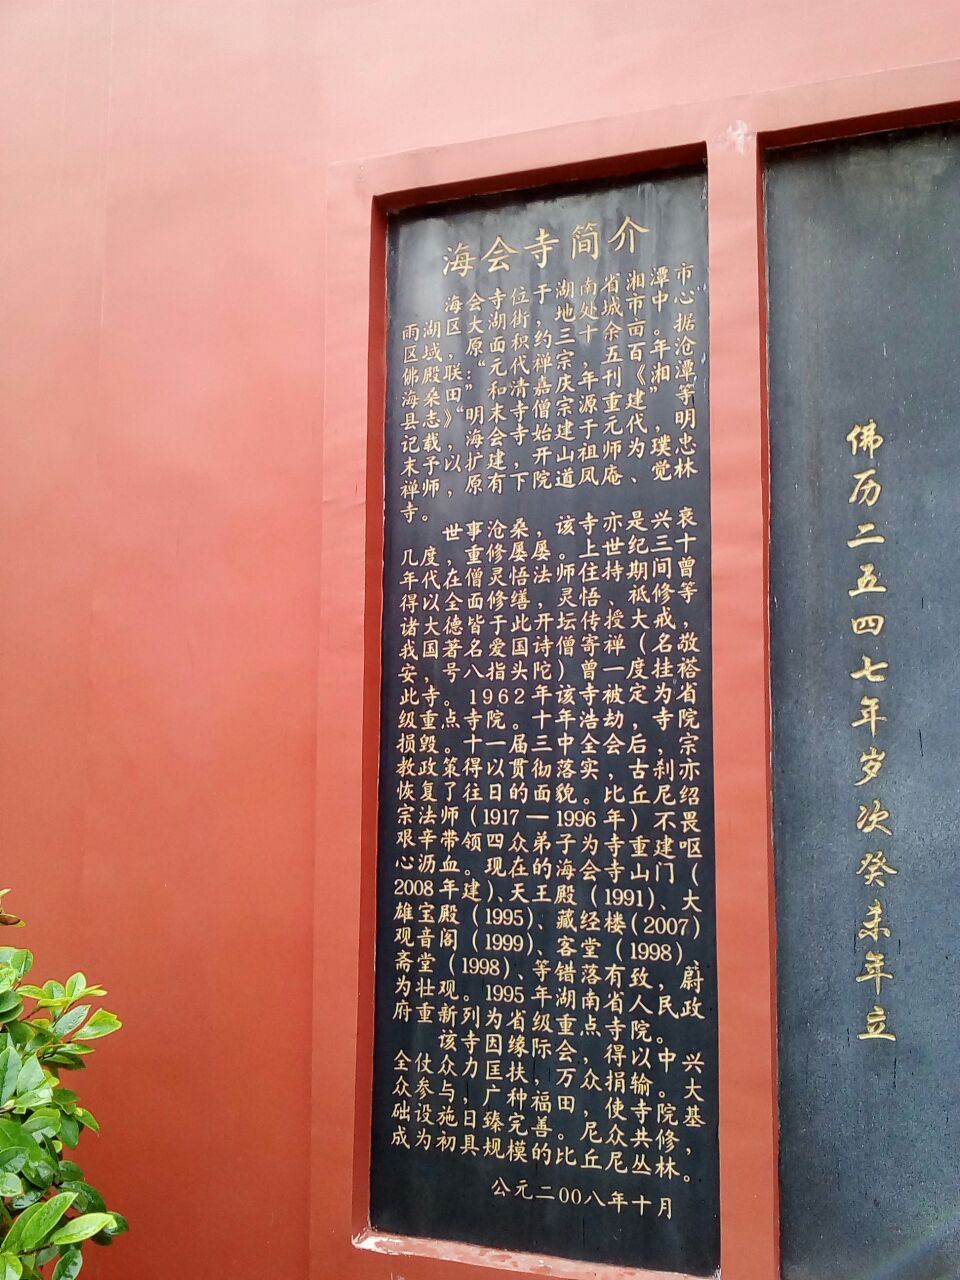 海会寺简介
海会寺位于湖南省湘潭市
雨湖区大湖街，地处城市中心
区域，原面积约三十余亩。据
佛殿联：“元代禅宗，五百年沧
海桑田”和清嘉庆年刊《湘潭
县志》“明末寺僧宗源重建”等
记载，海会寺始建于元代，明
末予以扩建，开山祖师为璞忠
禅师，原有下院道风庵、觉林
寺。
世事沧桑，该寺亦是兴衰
几度，重修屡屡。上世纪三十
年代在僧灵悟法师住持期间曾
得以全面修缮，灵悟、祗修等
诸大德皆于此开坛传授大戒，
我国著名爱国诗僧寄禅（名敬
安，号八指头陀）曾一度挂褡
此寺。1962年该寺被定为省
级重点寺院。十年浩劫，寺院
损毁。十一届三中全会后，宗
教政策得以贯彻落实，古刹亦
恢复了往日的面貌。比丘尼绍
宗法师（1917—1996年）不畏
艰辛带领四众弟子为寺重建呕
心沥血。现在的海会寺山门（
2008年建）、天王殿（1991）、大
雄宝殿（1995）、藏经楼（2007）
观音阁（1999）、客堂（1998）、
斋堂（1998）、等错落有致，蔚
为壮观。1995年湖南省人民政
府重新列为省级重点寺院。
该寺因缘际会，得以中兴
全仗众力匡扶，万众捐输。大
众参与，广种福田，使寺院基
础设施日臻完善。尼众共修，
成为初具规模的比丘尼丛林。
公元二00八年十月
佛历二五四七年岁次癸未年立